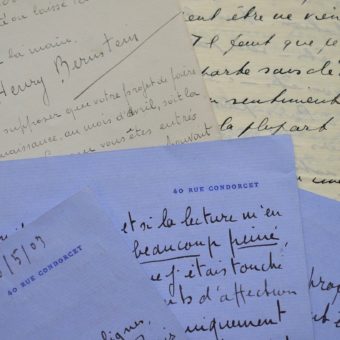 la main.
Henry Bernstein
supposer que votre projet de faire
naissance, au mois d'avril, soit la
vous êtes entrés
ent être ne vien
Il faut que ce
parte sans dé
sentiment
la plupart
40 RUE CONDORCET
et si la lecture m'en
beaucoup peiné,
que j'étais touché
d'affection
uniquement
/5/03
40 RUE CONDORCET
lignes,